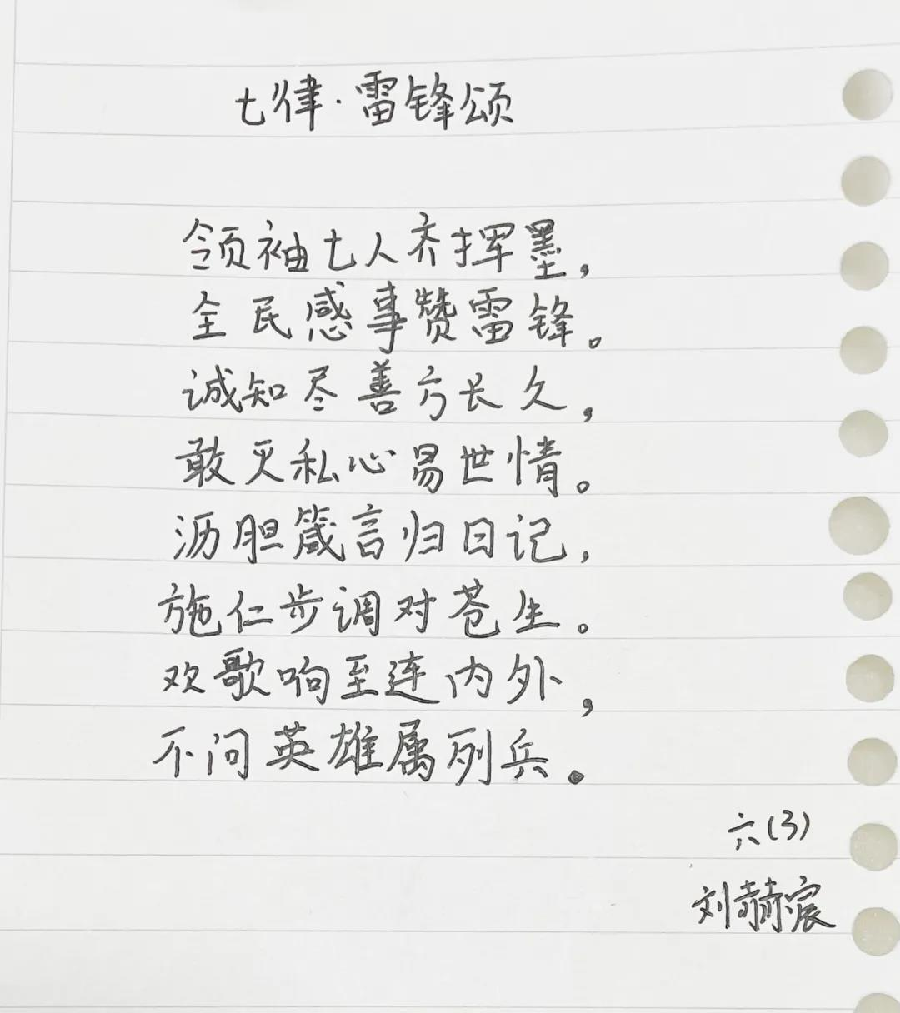 七律·雷锋颂
领袖七人齐挥墨，
全民感事赞雷锋。
诚知尽善方长久，
敢灭私心易世情。
沥胆箴言归日记，
施仁步调对苍生。
欢歌响至连内外，
不问英雄属列兵。
六(3)
刘赫宸